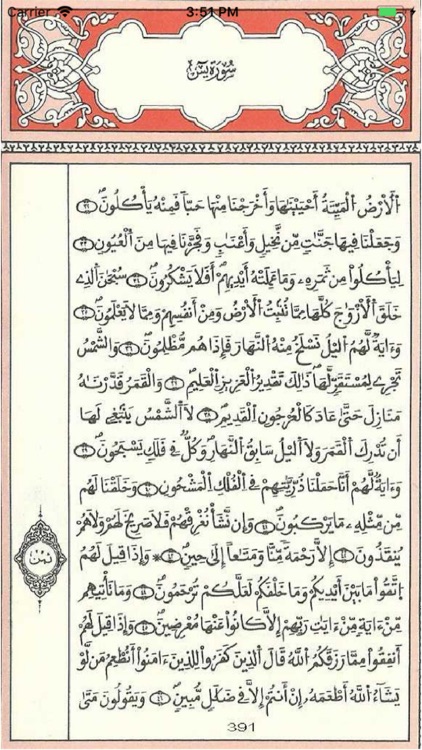 Carrier 3:51 PM
سُورَةُ يسٓ
اُ۬لَارْضُ اُ۬لْمَيِّتَةُ أَحْيَيْنَٰهَا وَأَخْرَجْنَا مِنْهَا حَبّاٗ فَمِنْهُ يَأْكُلُونَۖ
وَجَعَلْنَا فِيهَا جَنَّٰتٖ مِّن نَّخِيلٖ وَأَعْنَٰبٖ وَفَجَّرْنَا فِيهَا مِنَ اَ۬لْعُيُونِ
لِيَأْكُلُواْ مِن ثَمَرِهِۦ وَمَا عَمِلَتْهُ أَيْدِيهِمُۥٓ أَفَلَا يَشْكُرُونَۖ سُبْحَٰنَ اَ۬لذِے
خَلَقَ اَ۬لَازْوَٰجَ كُلَّهَا مِمَّا تُنۢبِتُ اُ۬لَارْضُ وَمِنَ اَنفُسِهِمْ وَمِمَّا لَا يَعْلَمُونَۖ
وَءَايَةٞ لَّهُمُ اُ۬ليْلُ نَسْلَخُ مِنْهُ اُ۬لنَّهَارَ فَإِذَا هُم مُّظْلِمُونَۖ وَالشَّمْسُ
تَجْرِے لِمُسْتَقَرّٖ لَّهَاۖ ذَٰلِكَ تَقْدِيرُ اُ۬لْعَزِيزِ اِ۬لْعَلِيمِۖ وَالْقَمَرُ قَدَّرْنَٰهُ
مَنَازِلَ حَتَّىٰ عَادَ كَالْعُرْجُونِ اِ۬لْقَدِيمِۖ لَا اَ۬لشَّمْسُ يَنۢبَغِے لَهَآ
أَن تُدْرِكَ اَ۬لْقَمَرَ وَلَا اَ۬ليْلُ سَابِقُ اُ۬لنَّهَارِۖ وَكُلّٞ فِے فَلَكٖ يَسْبَحُونَۖ
وَءَايَةٞ لَّهُمُۥٓ أَنَّا حَمَلْنَا ذُرِّيَّٰتِهِمْ فِے اِ۬لْفُلْكِ اِ۬لْمَشْحُونِ وَخَلَقْنَا لَهُم
مِّن مِّثْلِهِۦ مَا يَرْكَبُونَۖ وَإِن نَّشَأْ نُغْرِقْهُمْ فَلَا صَرِيخَ لَهُمْ وَلَا هُمْ
يُنقَذُونَ إِلَّا رَحْمَةٗ مِّنَّا وَمَتَٰعاً اِلَىٰ حِينٖۖ وَإِذَا قِيلَ لَهُمُ
اُ۪تَّقُواْ مَا بَيْنَ أَيْدِيكُمْ وَمَا خَلْفَكُمْ لَعَلَّكُمْ تُرْحَمُونَۖ وَمَا تَأْتِيهِم
مِّنَ اٰيَةٖ مِّنَ اٰيَٰتِ رَبِّهِمُۥٓ إِلَّا كَانُواْ عَنْهَا مُعْرِضِينَۖ وَإِذَا قِيلَ لَهُمُۥٓ
أَنفِقُواْ مِمَّا رَزَقَكُمُ اُ۬للَّهُ قَالَ اَ۬لذِينَ كَفَرُواْ لِلذِينَ ءَامَنُوٓاْ أَنُطْعِمُ مَن لَّوْ
يَشَآءُ اُ۬للَّهُ أَطْعَمَهُۥٓ إِنَ اَنتُمُۥٓ إِلَّا فِے ضَلَٰلٖ مُّبِينٖۖ وَيَقُولُونَ مَتَىٰ
ثمن
391